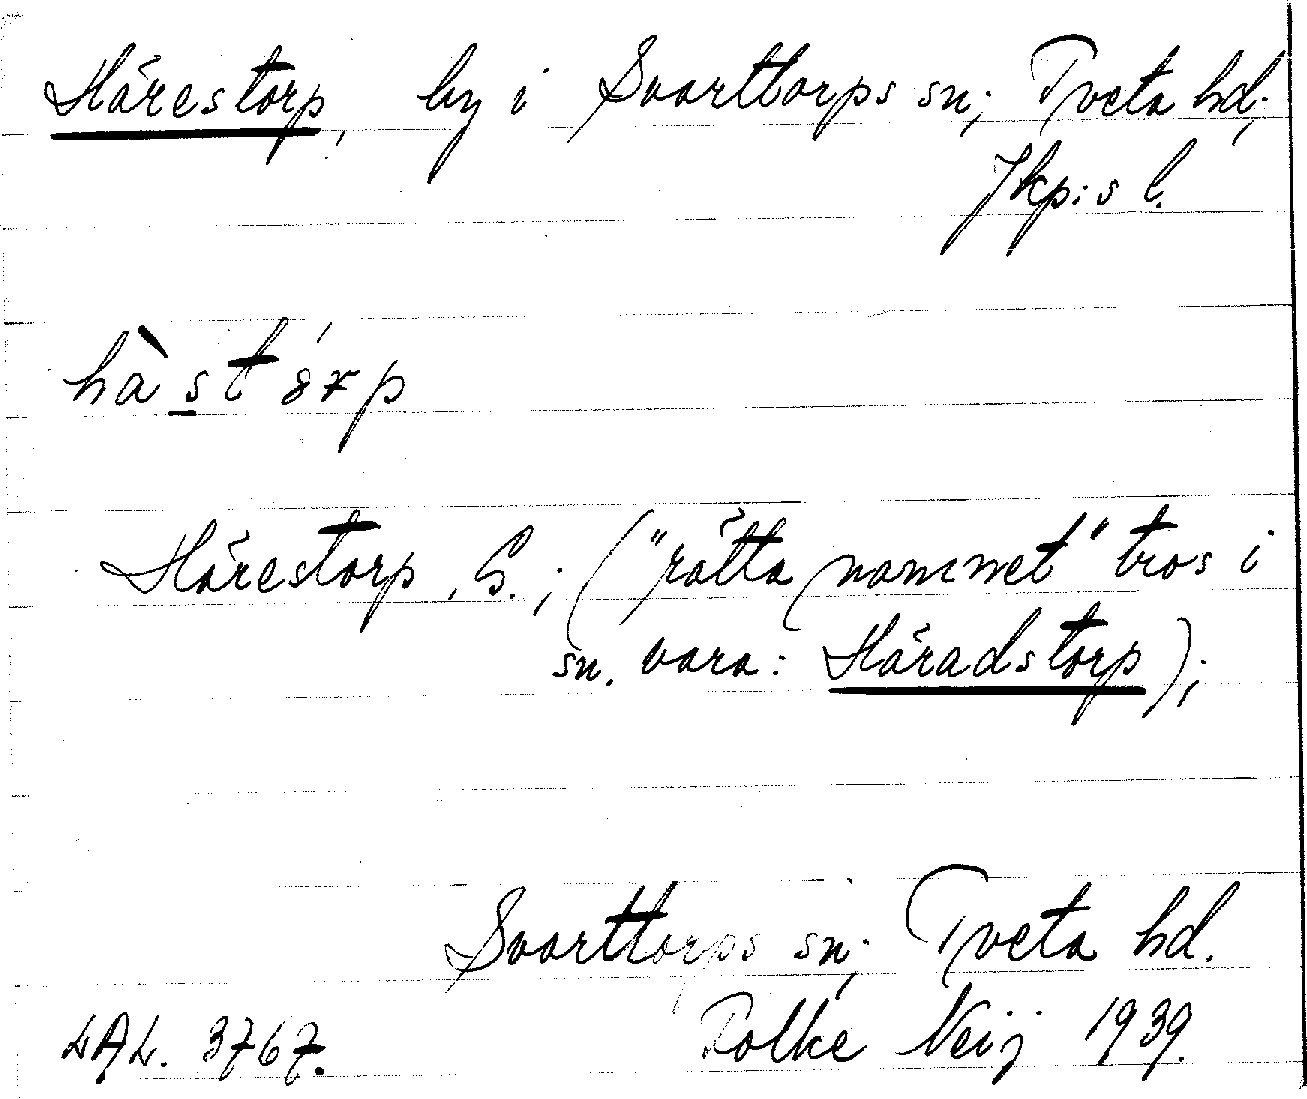 Härestorp, by i Svarttorps sn; Tveta hd;
Jkp:s l.
hàstórp
Härestorp, G.; ("rätta namnet" tros i
sn. vara: Häradstorp);
Svarttorps sn; Tveta hd.
LAL. 3767. Folke Neij 1939.